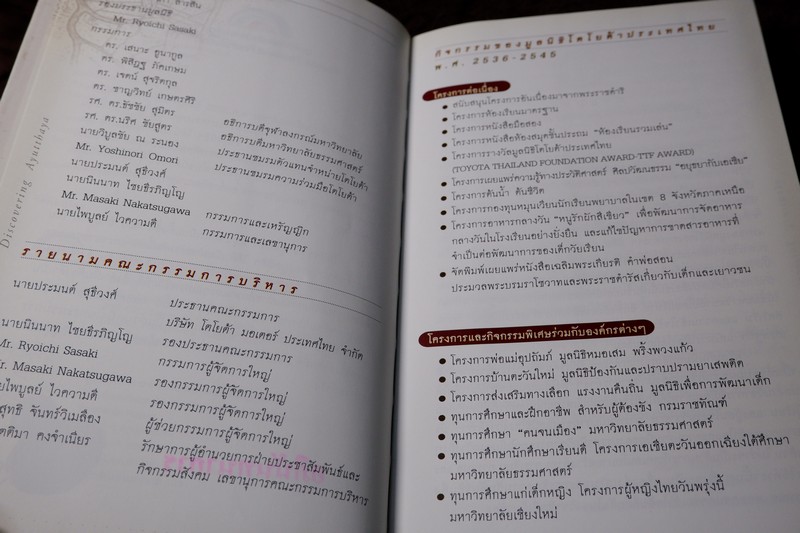 รองประธานมูลนิธิ
Mr. Ryoichi Sasaki
กรรมการ
ดร. เสนาะ อูนากูล
ดร. พิสิฏฐ ภัคเกษม
ดร. เจตน์ สุจริตกุล
ดร. ชาญวิทย์ เกษตรศิริ
รศ. ดร.ธัชชัย สุมิตร อธิการบดีจุฬาลงกรณ์มหาวิทยาลัย
รศ. ดร.นริศ ชัยสูตร อธิการบดีมหาวิทยาลัยธรรมศาสตร์
นายวิบูลชัย ณ ระนอง ประธานชมรมตัวแทนจำหน่ายโตโยต้า
Mr. Yoshinori Omori ประธานชมรมความร่วมมือโตโยต้า
นายประมนต์ สุธีวงศ์
นายนินนาท ไชยธีรภิญโญ
Mr. Masaki Nakatsugawa กรรมการและเหรัญญิก
นายไพบูลย์ ไวความดี กรรมการและเลขานุการ
Discovering Ayutthaya
รายนามคณะกรรมการบริหาร
นายประมนต์ สุธีวงศ์ ประธานคณะกรรมการ
บริษัท โตโยต้า มอเตอร์ ประเทศไทย จำกัด
นายนินนาท ไชยธีรภิญโญ รองประธานคณะกรรมการ
Mr. Ryoichi Sasaki กรรมการผู้จัดการใหญ่
Mr. Masaki Nakatsugawa รองกรรมการผู้จัดการใหญ่
ยไพบูลย์ ไวความดี รองกรรมการผู้จัดการใหญ่
สุทธิ จันทร์วิเมลือง ผู้ช่วยกรรมการผู้จัดการใหญ่
ตติมา คงจำเนียร รักษาการผู้อำนวยการฝ่ายประชาสัมพันธ์และ
กิจกรรมสังคม เลขานุการคณะกรรมการบริหาร
กิจกรรมของมูลนิธิโตโยต้าประเทศไทย
พ.ศ. 2536-2545
โครงการต่อเนื่อง
• สนับสนุนโครงการอันเนื่องมาจากพระราชดำริ
• โครงการห้องเรียนมาตรฐาน
• โครงการหนังสือมือสอง
• โครงการหนังสือห้องสมุดชั้นประถม "ห้องเรียนรวมเล่น"
• โครงการรางวัลมูลนิธิโตโยต้าประเทศไทย
(TOYOTA THAILAND FOUNDATION AWARD-TTF AWARD)
• โครงการเผยแพร่ความรู้ทางประวัติศาสตร์ ศิลปวัฒนธรรม "อยุธยากับเอเชีย"
• โครงการต้นน้ำ ต้นชีวิต
• โครงการกองทุนหมุนเวียนนักเรียนพยาบาลในเขต 8 จังหวัดภาคเหนือ
• โครงการอาหารกลางวัน "หนูรักผักสีเขียว" เพื่อพัฒนาการจัดอาหาร
กลางวันในโรงเรียนอย่างยั่งยืน และแก้ไขปัญหาการขาดสารอาหารที่
จำเป็นต่อพัฒนาของเด็กวัยเรียน
• จัดพิมพ์เผยแพร่หนังสือเฉลิมพระเกียรติ คำพ่อสอน
ประมวลพระบรมราโชวาทและพระราชดำรัสเกี่ยวกับเด็กและเยาวชน
โครงการและกิจกรรมพิเศษร่วมกับองค์กรต่างๆ
• โครงการพ่อแม่อุปถัมภ์ มูลนิธิหมอเสม พริ้งพวงแก้ว
• โครงการบ้านตะวันใหม่ มูลนิธิป้องกันและปราบปรามยาเสพติด
• โครงการส่งเสริมทางเลือก แรงงานคืนถิ่น มูลนิธิเพื่อการพัฒนาเด็ก
• ทุนการศึกษาและฝึกอาชีพ สำหรับผู้ต้องขัง กรมราชทัณฑ์
• ทุนการศึกษา "คนจนเมือง" มหาวิทยาลัยธรรมศาสตร์
• ทุนการศึกษานักศึกษาเรียนดี โครงการเอเชียตะวันออกเฉียงใต้ศึกษา
มหาวิทยาลัยธรรมศาสตร์
• ทุนการศึกษาแก่เด็กหญิง โครงการผู้หญิงไทยวันพรุ่งนี้
มหาวิทยาลัยเชียงใหม่